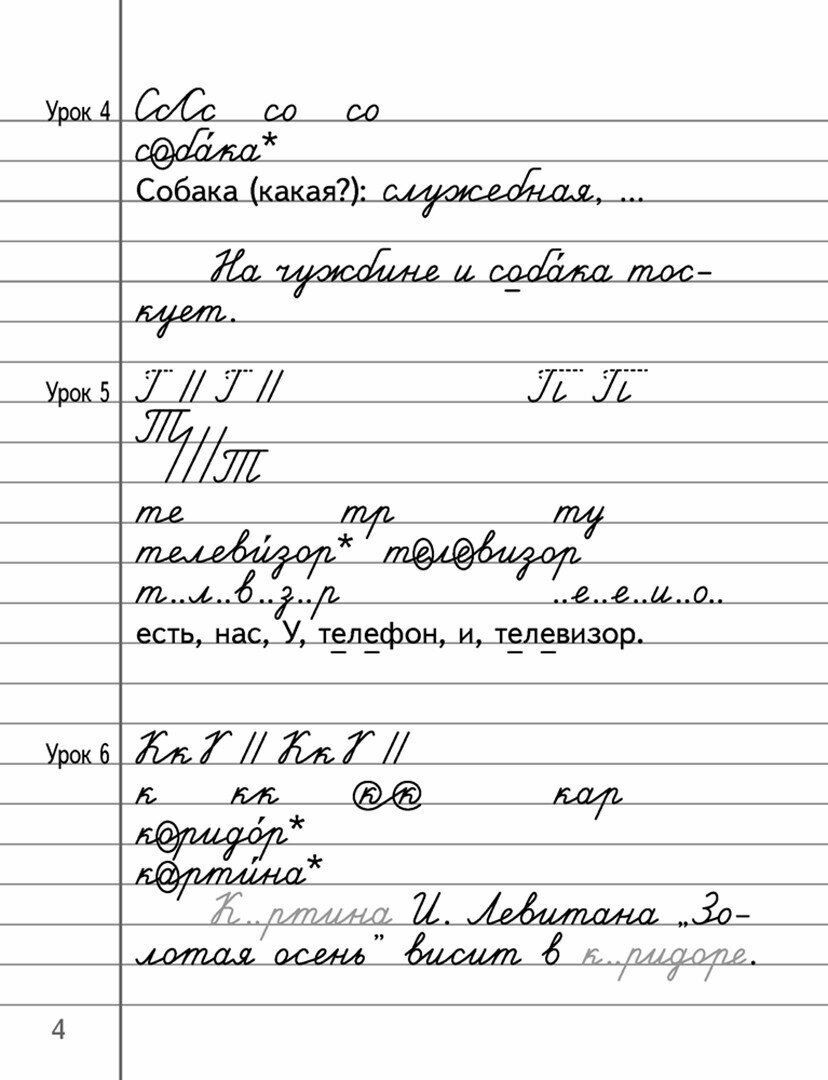 Урок 4 СсЛс со со
соба́ка*
Собака (какая?): служебная, ...
На чужбине и соба́ка тос-
кует.
Урок 5 Г // Г // П П
Т///Т
те тр ту
телеви́зор* телевизор
т..л..в..з..р ..е..е..и..о..
есть, нас, У, телефон, и, телевизор.
Урок 6 КкГ // КкГ //
к кк кк кар
коридо́р*
карти́на*
К..ртина И. Левитана „Зо-
лотая осень” висит в к..ридоре.
4